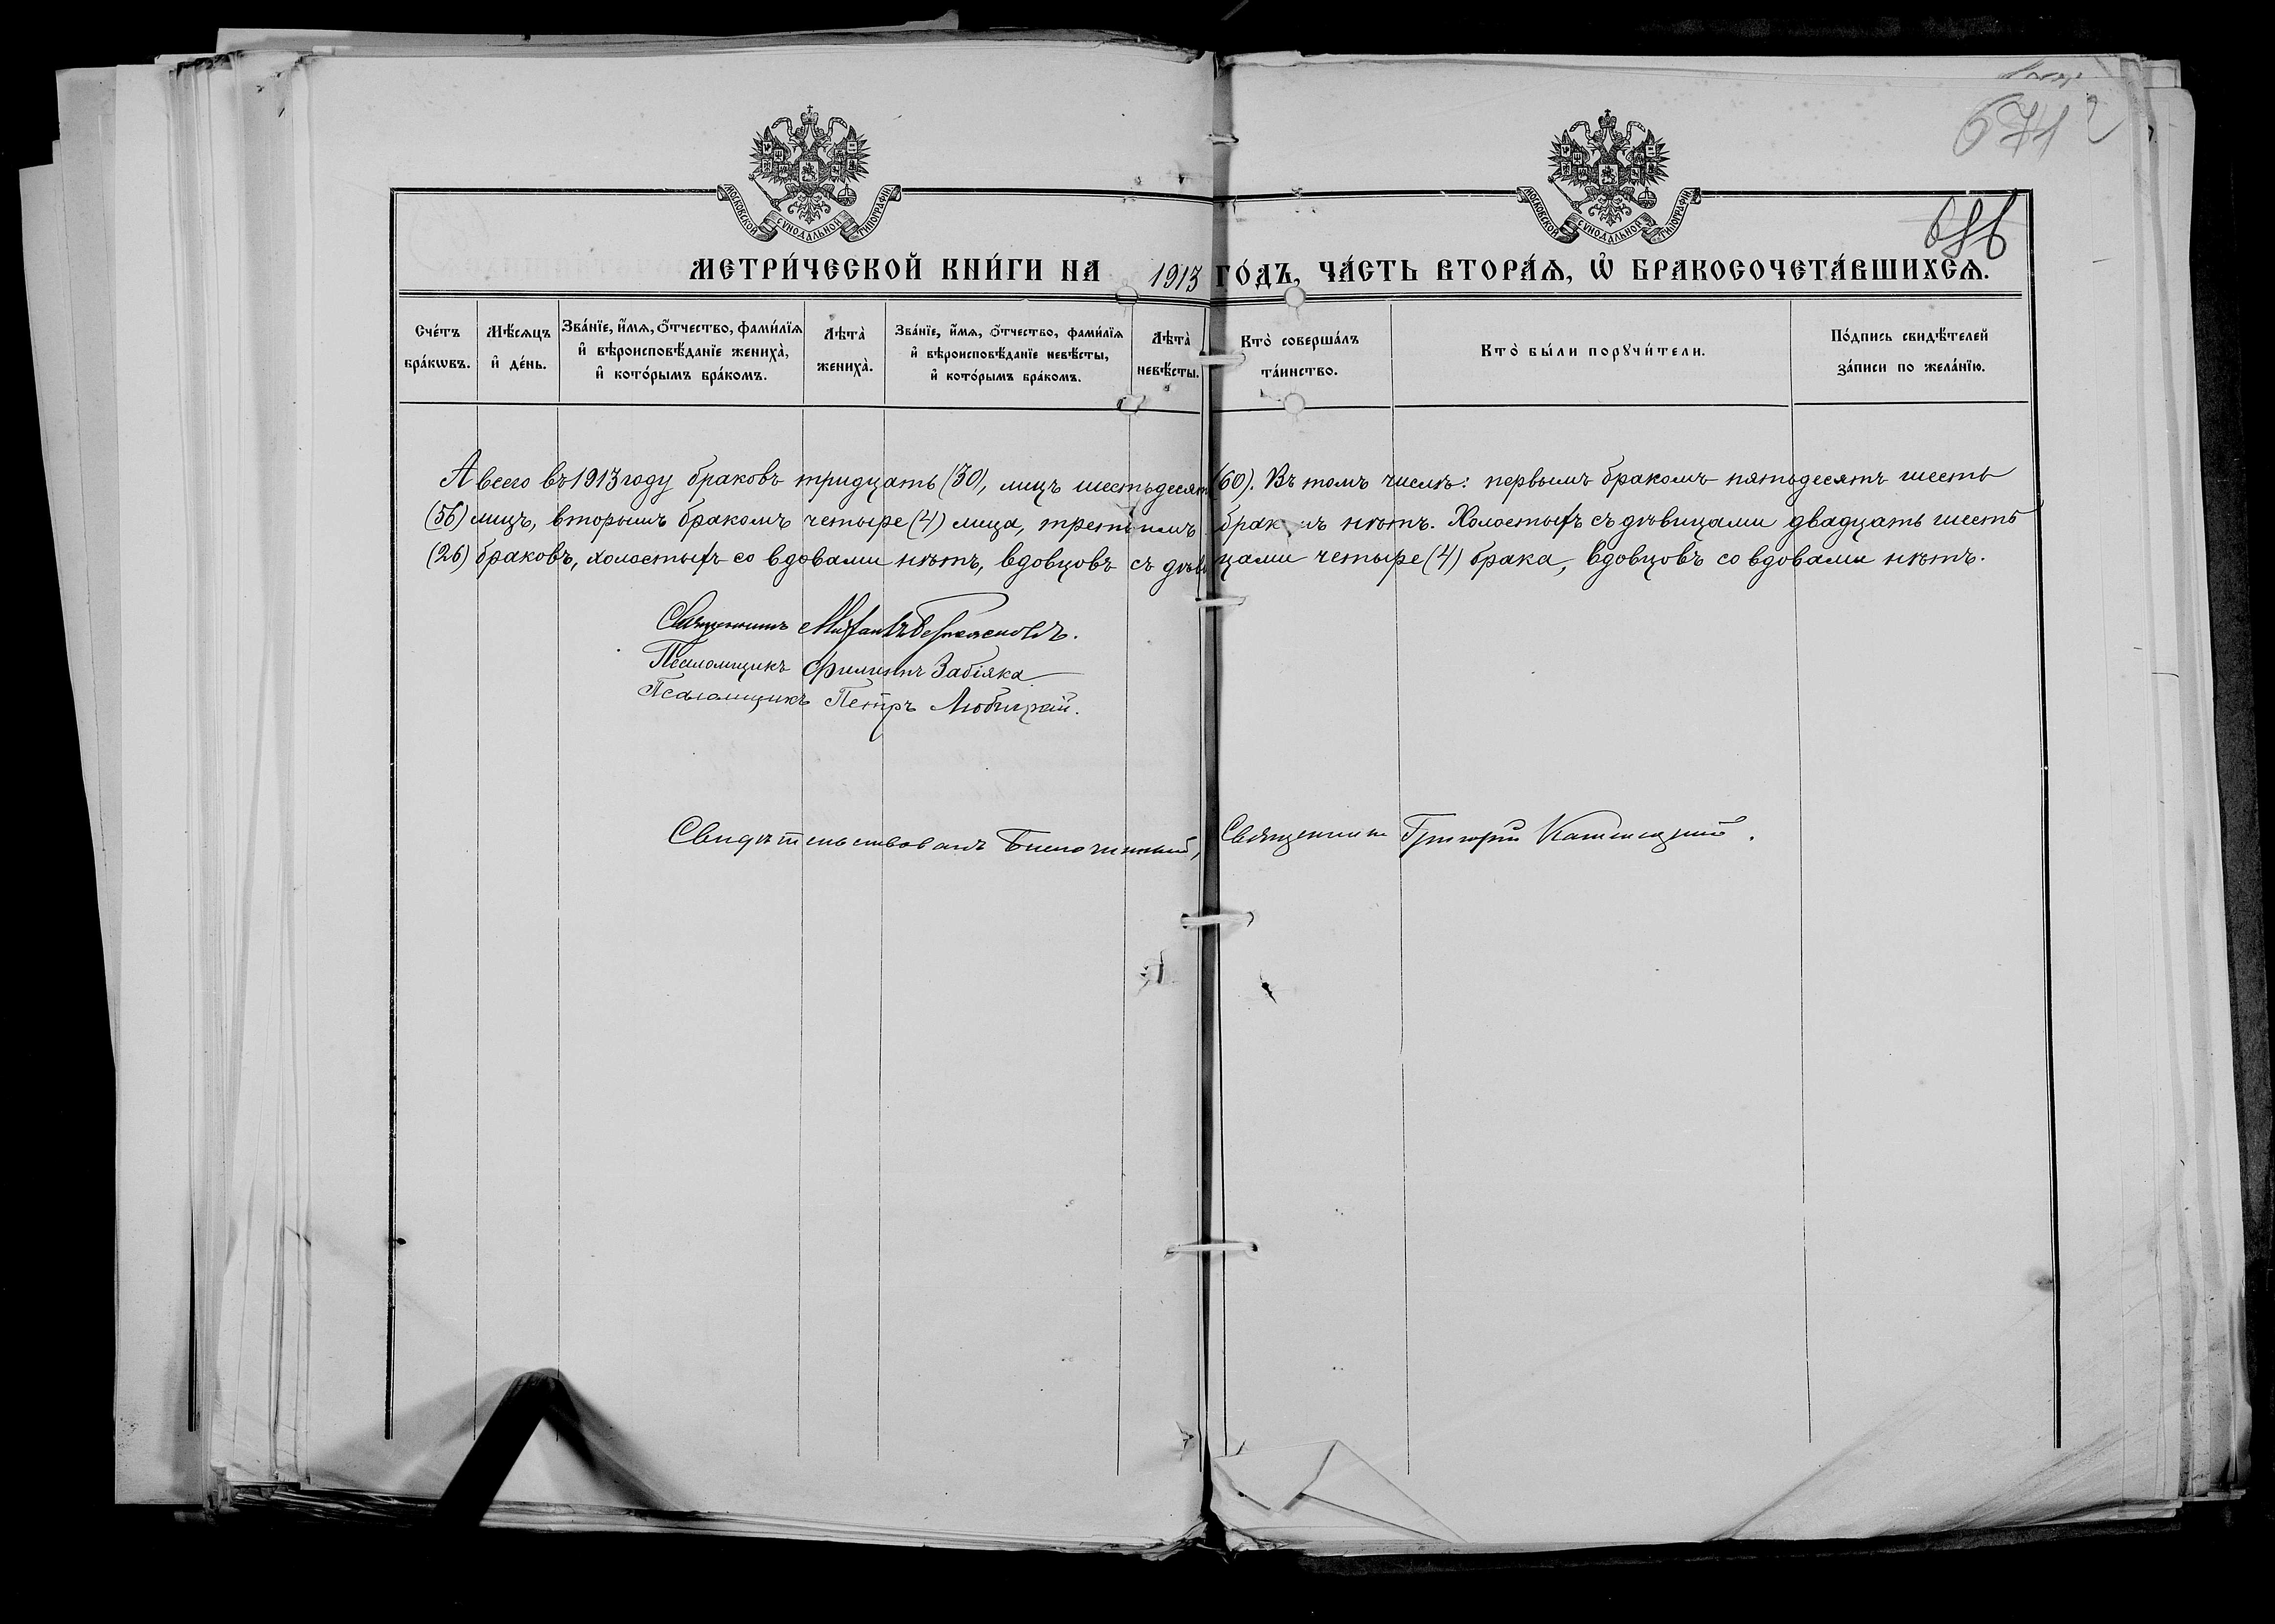 671
686
МОСКОВСКОЙ СѴНОДАЛЬНОЙ ТИПОГРАФІИ
МОСКОВСКОЙ СѴНОДАЛЬНОЙ ТИПОГРАФІИ
МЕТРИ́ЧЕСКОЙ КНИ́ГИ НА 1913 ГО́ДЪ, ЧА́СТЬ ВТОРА́Ѧ, Ѽ БРАКОСОЧЕТА́ВШИХСѦ.
Сче́тъ бра́кѡвъ.
Мѣ́сѧцъ и҆ де́нь.
Зва́нїе, и҆́мѧ, ѻ҆́тчество, фами́лїѧ и҆ вѣроисповѣ́данїе жениха̀, и҆ кото́рымъ бра́комъ.
Лѣта̀ жениха̀.
Зва́нїе, и҆́мѧ, ѻ҆́тчество, фами́лїѧ и҆ вѣроисповѣ́данїе невѣ́сты, и҆ кото́рымъ бра́комъ.
Лѣта̀ невѣ́сты.
Кто̀ соверша́лъ та́инство.
Кто̀ бы́ли порꙋчи́тели.
По́дпись свидѣ́телей за́писи по жела́нїю.
А всего въ 1913 году браковъ тридцать (30), лицъ шестьдесят (60). Въ томъ числѣ: первымъ бракомъ пятьдесятъ шесть
(56) лицъ, вторымъ бракомъ четыре (4) лица, третьимъ бракомъ нѣтъ. Холостыхъ съ дѣвицами двадцать шесть
(26) браковъ, холостыхъ со вдовами нѣтъ, вдовцовъ съ дѣвицами четыре (4) брака, вдовцовъ со вдовами нѣтъ.
Священникъ Михаилъ
Псаломщикъ Филиппъ Забіяка
Псаломщикъ Петръ Любицкій.
Свидѣтельствовалъ Благочинный, Священникъ Григорій